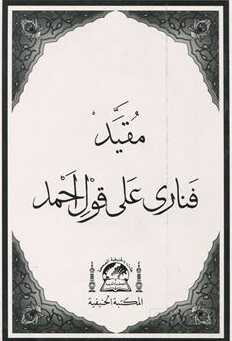 مُقَيَّد
فناری عَلٰی قَوْل اَحْمَد
المكتبة الحنيفية